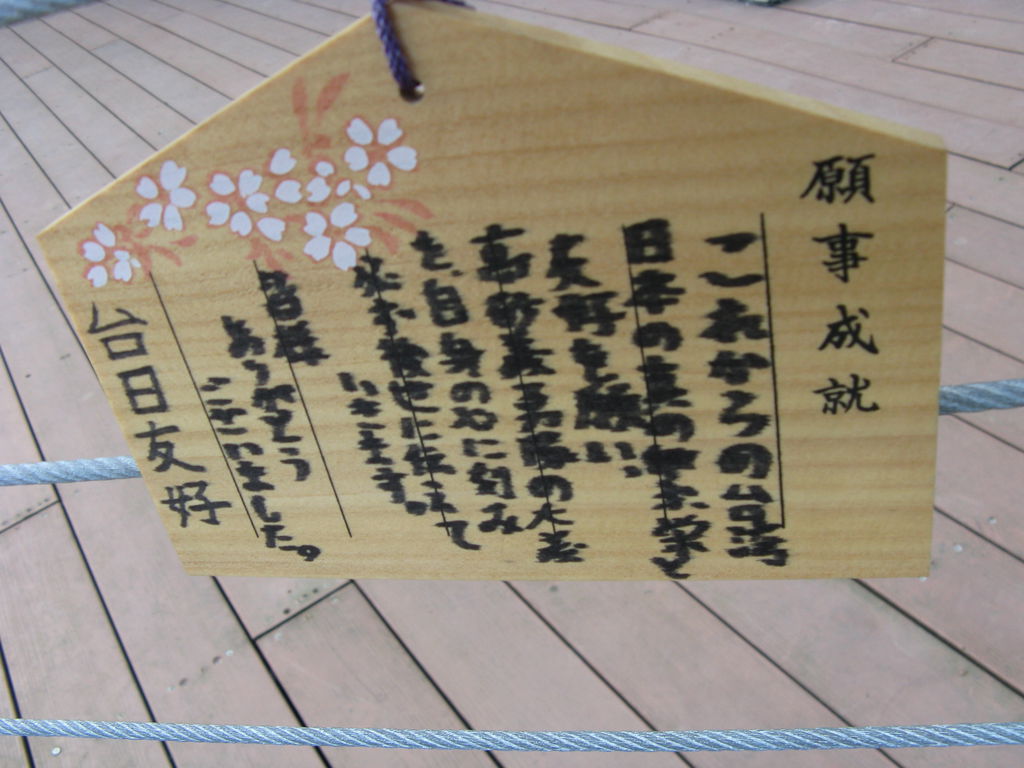 願事成就
これからの台湾
日本の真の安泰と
友好を願い、
高砂義勇隊の人々
を、自身の心に刻み
後世に伝えて
いきます。
皆様
ありがとう
ございました。
台日友好